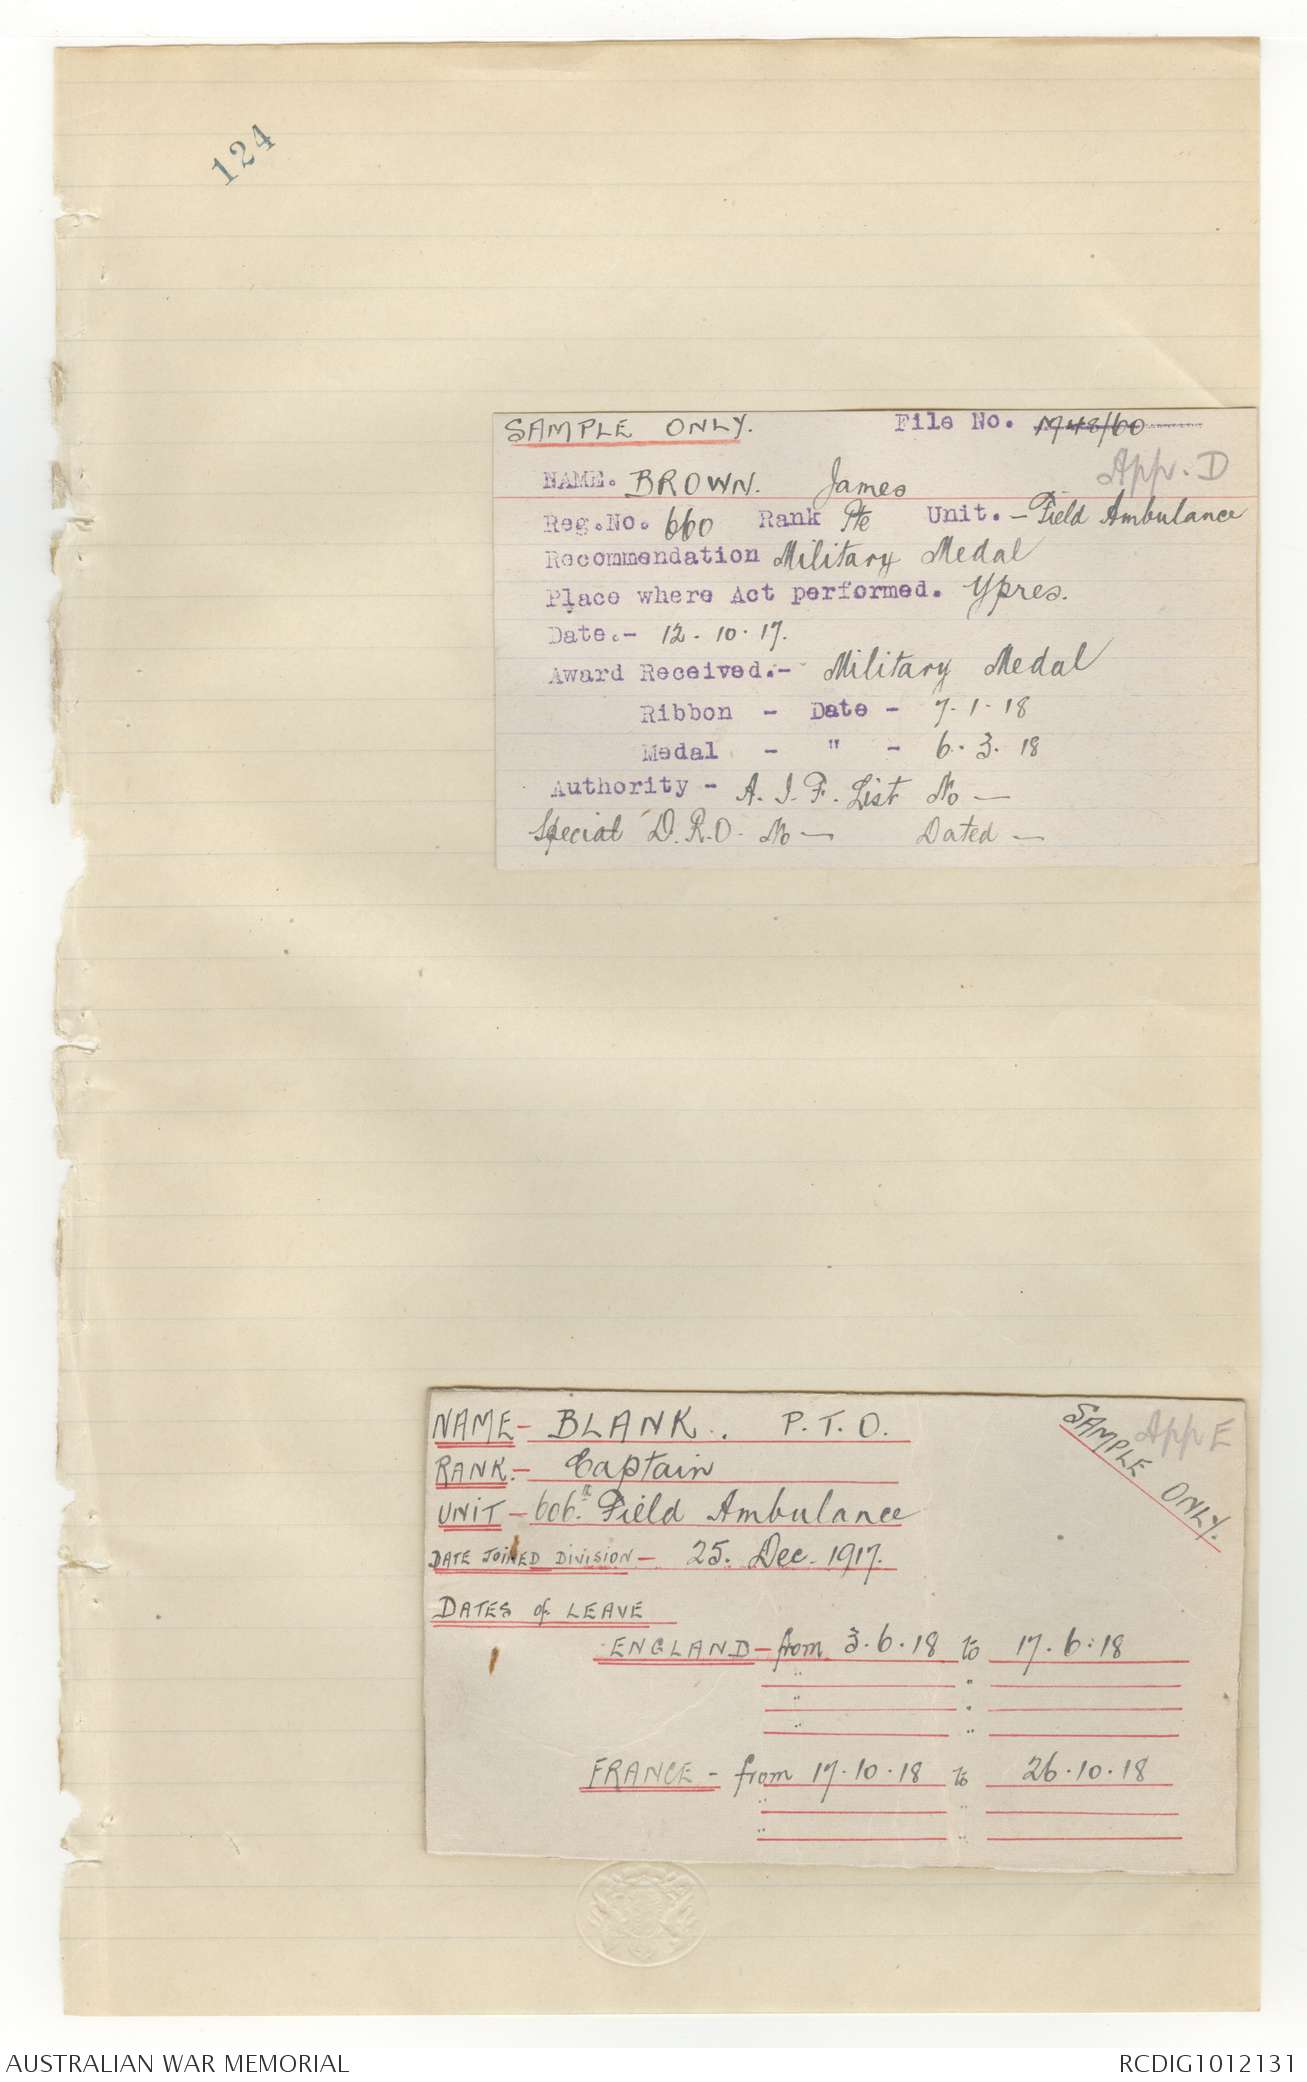 124
SAMPLE ONLY. File No. M48/60
App. D
NAME. BROWN. James
Reg.No. 660 Rank Pte Unit. - Field Ambulance
Recommendation Military Medal
Place where Act performed. Ypres.
Date.- 12.10.17.
Award Received.- Military Medal
Ribbon - Date - 7.1.18
Medal - " - 6.3.18
Authority - A.I.F. List No —
Special D.R.O. No — Dated —
NAME - BLANK.. P.T.O.
SAMPLE ONLY.
App E
RANK. - Captain
UNIT - 606th Field Ambulance
DATE JOINED DIVISION - 25. Dec. 1917.
DATES of LEAVE
ENGLAND - from 3.6.18 to 17.6.18
" "
" "
" "
FRANCE - from 17.10.18 to 26.10.18
" "
" "
AUSTRALIAN WAR MEMORIAL RCDIG1012131